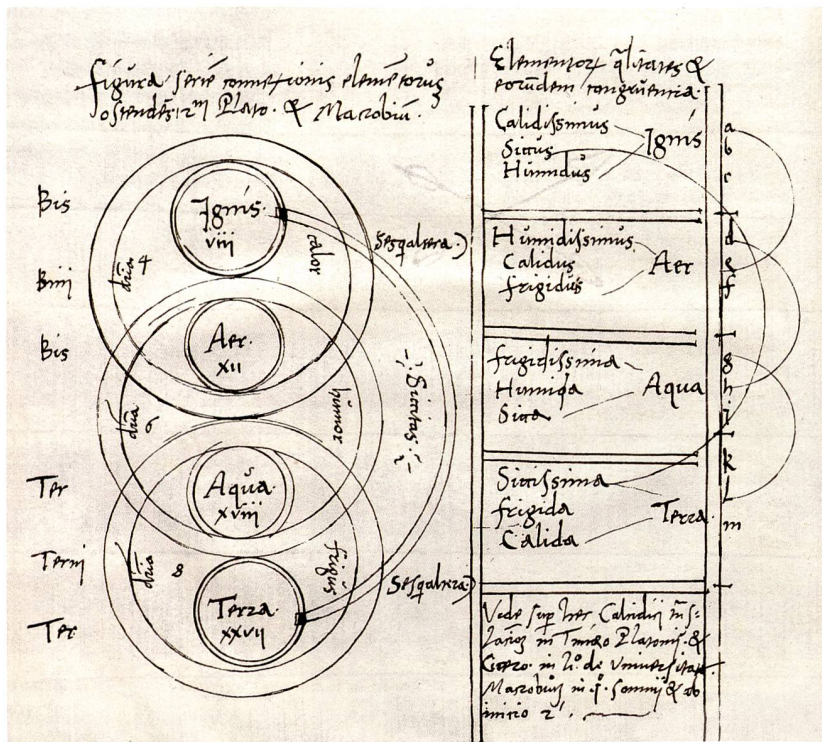 figura seriē connexionis elemētorus
ostendēs Plato. & Macrobiū.
Bis
Biiij
Bis
Ter
Terni
Ter
Ignis.
viii
dr̄ia 4
calor
Aer.
xii
dr̄ia 6
humor
Aqua.
xviii
dr̄ia 8
frigus
Terra.
xxvii
Sesq̄altera.)
Sicitas
Sesq̄altera.)
Elementoꝝ q̄litates &
eorundem congruencia.
Calidissimus
Siccus
Humidus
Ignis
Humidissimus
Calidus
frigidus
Aer
frigidissima
Humida
Sicca
Aqua
Siccissima
frigida
Calida
Terra.
a
b
c
d
e
f
g
h
i
k
l
m
Vide sup hec Calcidiū
in Timeo Platonis. &
Cicero. in li.º de Vniversitate
Macrobiū in somnij & ab
inicio 2